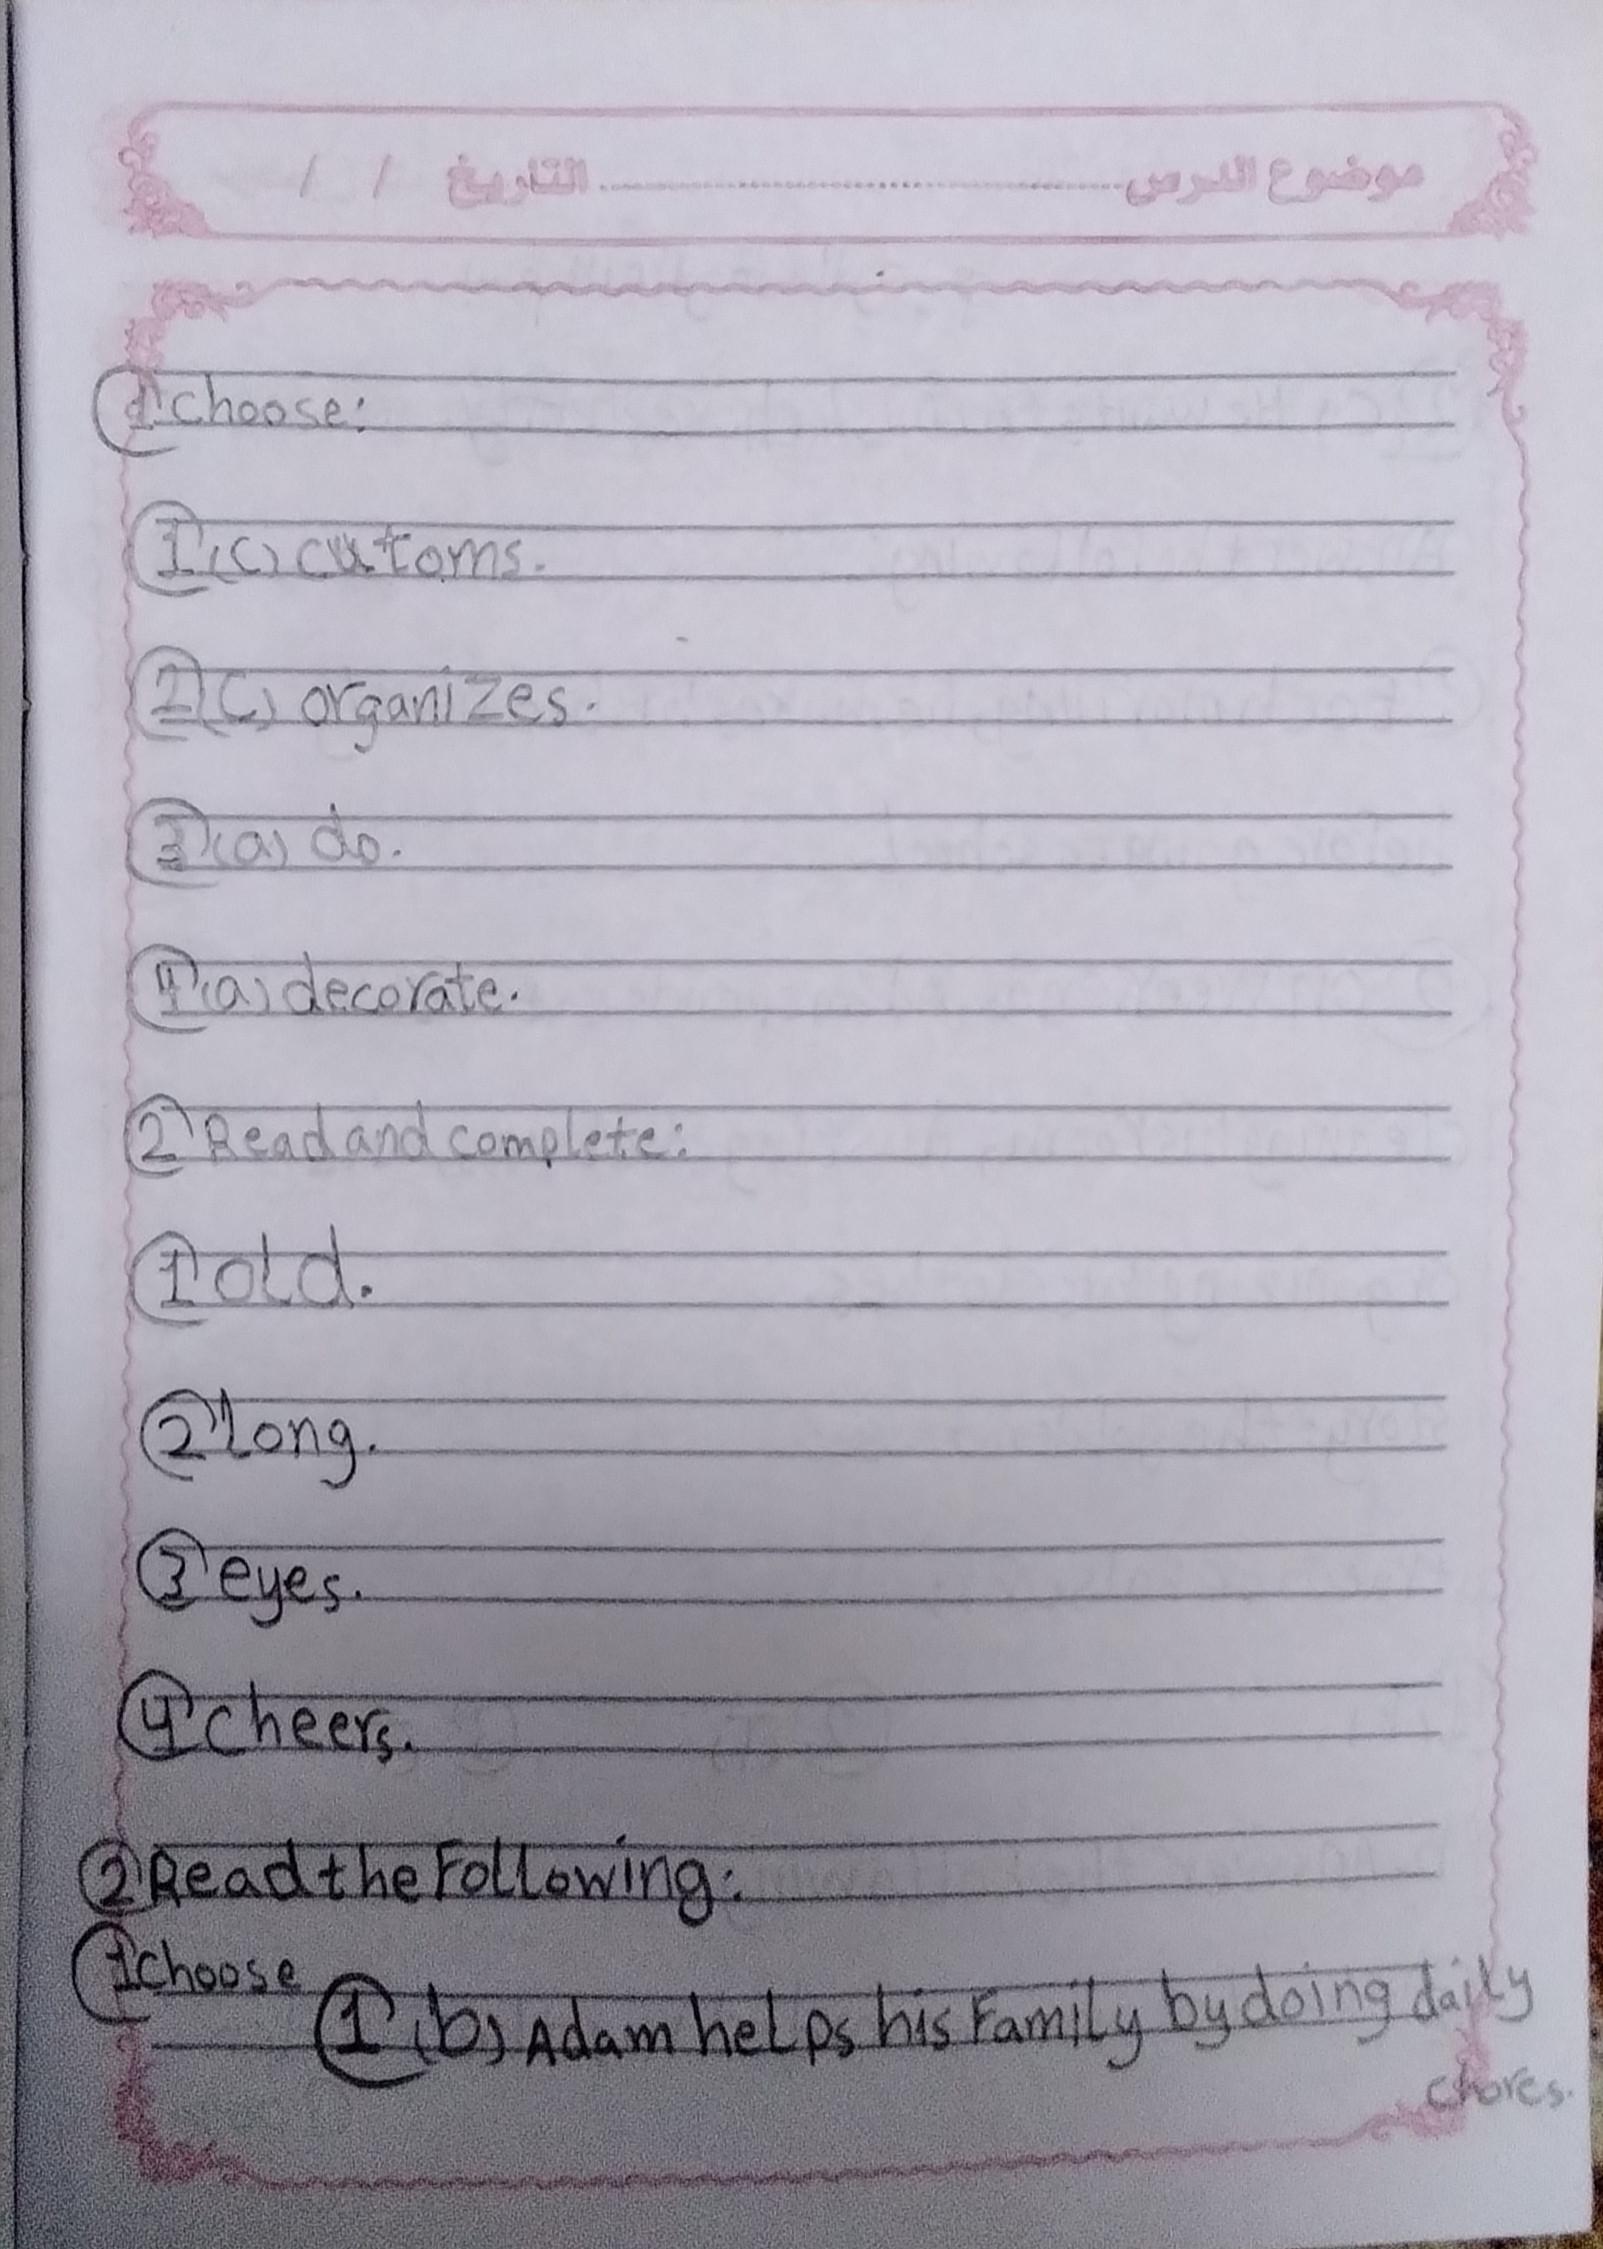 موضوع الدرس ........................ التاريخ / /
1 choose:
1 (c) cutoms.
2 (c) organizes.
3 (a) do.
4 (a) decorate.
2 Read and complete:
1 old.
2 long.
3 eyes.
4 cheers.
2 Read the Following:
1 choose
1 (b) Adam helps his Family by doing daily
chores.